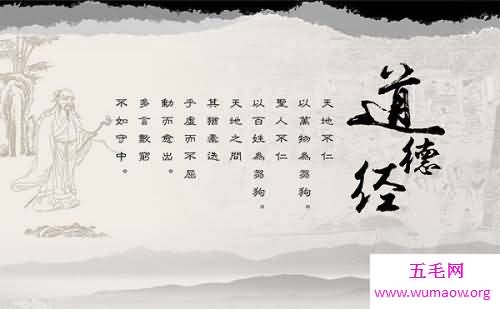 道德经
天地不仁
以萬物為芻狗。
聖人不仁
以百姓為芻狗。
天地之間
其猶橐
乎虛而不屈
動而愈出。
多言數窮
不如守中。
五毛网
www.wumaow.org